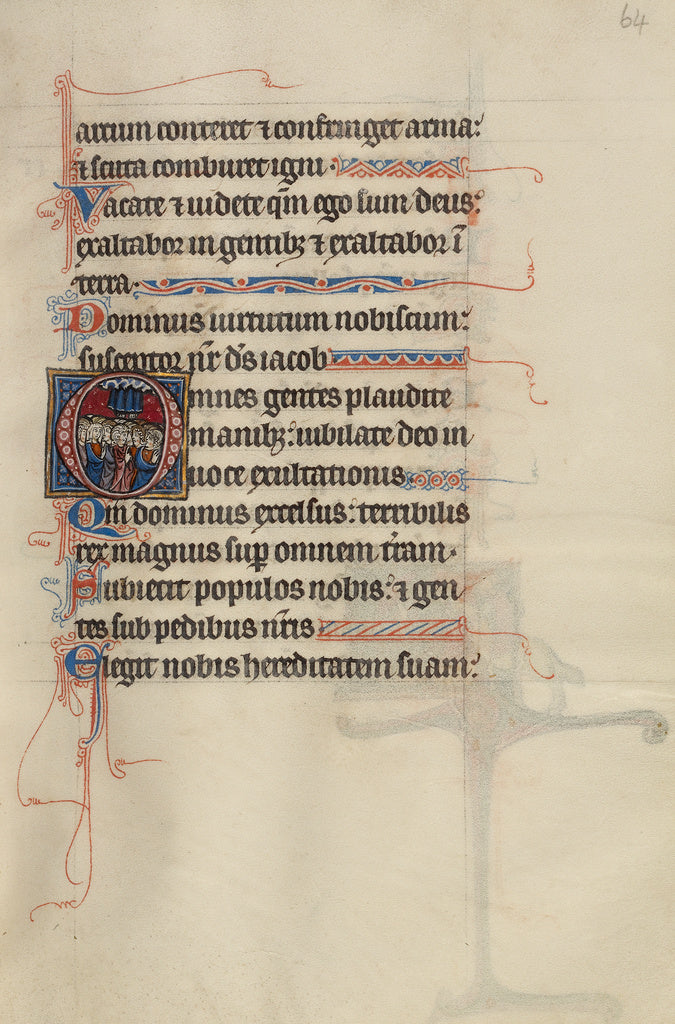 64
arcum conteret ⁊ confringet arma:
⁊ scuta comburet igni.
Vacate ⁊ uidete qm̄ ego sum deus:
exaltabor in gentibꝫ ⁊ exaltabor ī
terra.
Dominus uirtutum nobiscum:
susceptor nr̄ ds̄ iacob
Omnes gentes plaudite
manibꝫ: iubilate deo in
uoce exultationis
Qm̄ dominus excelsus: terribilis
rex magnus suꝑ omnem tr̄am.
Subiecit populos nobis: ⁊ gen
tes sub pedibus nr̄is
Elegit nobis hereditatem suam: